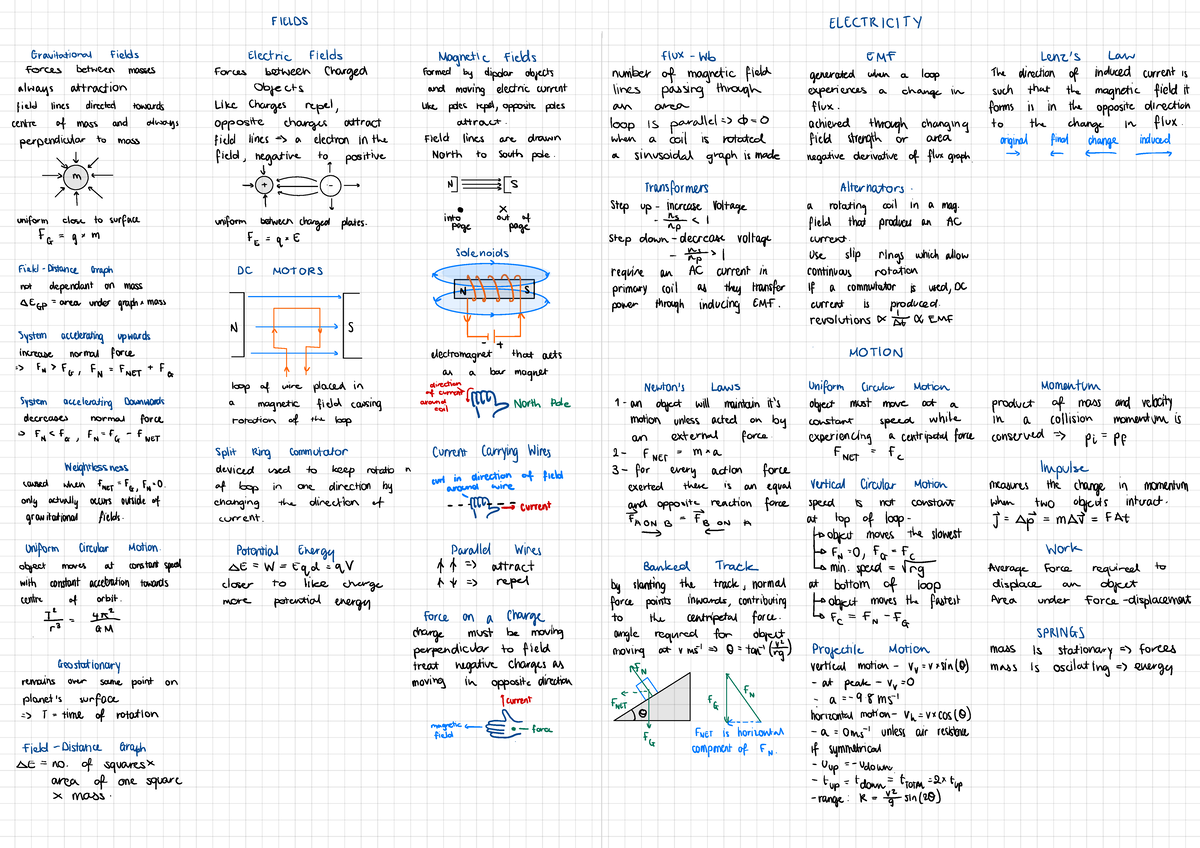 FIELDS
Gravitational Fields
Forces between masses
always attraction
field lines directed towards
centre of mass and always
perpendicular to mass
m
uniform close to surface
F_G = g × m
Field - Distance Graph
not dependant on mass
ΔE_GP = area under graph × mass
System accelerating upwards
increase normal force
=> F_N > F_G, F_N = F_NET + F_G
System accelerating Downwards
decreases normal force
=> F_N < F_G, F_N = F_G - F_NET
Weightlessness
caused when F_NET = F_G, F_N = 0.
only actually occurs outside of
gravitational fields.
Uniform Circular Motion.
object moves at constant speed
with constant acceleration towards
centre of orbit.
T²/r³ = 4π²/GM
Geostationary
remains over same point on
planet's surface
=> T = time of rotation
Field - Distance Graph
ΔE = no. of squares ×
area of one square
× mass.
Electric Fields
Forces between Charged
Objects
Like Charges repel,
opposite charges attract
field lines → a electron in the
field, negative to positive
+ -
uniform between charged plates.
F_E = q × E
DC MOTORS
N S
loop of wire placed in
a magnetic field causing
rotation of the loop
Split Ring Commutator
deviced used to keep rotation
of loop in one direction by
changing the direction of
current.
Potential Energy
ΔE = W = Eqd = qV
closer to like charge
more potential energy
Magnetic Fields
Formed by dipolar objects
and moving electric current
Like poles repel, opposite poles
attract.
Field lines are drawn
North to South pole.
N S
• ×
into page out of page
Solenoids
N S
- +
electromagnet that acts
as a bar magnet
direction
of current
around
coil
North Pole
Current Carrying Wires
curl in direction of field
around wire
current
Parallel Wires
↑ ↑ => attract
↑ ↓ => repel
Force on a Charge
charge must be moving
perpendicular to field
treat negative charges as
moving in opposite direction
current
magnetic
field
force
ELECTRICITY
flux - Wb
number of magnetic field
lines passing through
an area
loop is parallel => Φ = 0
when a coil is rotated
a sinusoidal graph is made
Transformers
Step up - increase Voltage
- ns/np < 1
Step down - decrease voltage
- ns/np > 1
require an AC current in
primary coil as they transfer
power through inducing EMF.
EMF
generated when a loop
experiences a change in
flux.
achieved through changing
field strength or area
negative derivative of flux graph
Alternators.
a rotating coil in a mag.
field that produces an AC
current.
use slip rings which allow
continuous rotation
if a commutator is used, DC
current is produced.
revolutions ∝ 1/Δt ∝ EMF
Lenz's Law
The direction of induced current is
such that the magnetic field it
forms is in the opposite direction
to the change in flux.
original final change induced
→ ← ← →
MOTION
Newton's Laws
1 - an object will maintain it's
motion unless acted on by
an external force.
2 - F_NET = m × a
3 - for every action force
exerted there is an equal
and opposite reaction force
F_A ON B = F_B ON A
Banked Track
by slanting the track, normal
force points inwards, contributing
to the centripetal force.
angle required for object
moving at v ms⁻¹ => θ = tan⁻¹(v²/rg)
F_N
F_NET
θ
F_G
F_G F_N
F_NET is horizontal
component of F_N.
Uniform Circular Motion
object must move at a
constant speed while
experiencing a centripetal force
F_NET = F_C
Vertical Circular Motion
speed is not constant
at top of loop -
object moves the slowest
F_N = 0, F_G = F_C
min. speed = √rg
at bottom of loop
object moves the fastest
F_C = F_N - F_G
Projectile Motion
vertical motion - V_v = v × sin(θ)
- at peak - V_v = 0
- a = -9.8 ms⁻¹
horizontal motion - V_h = v × cos(θ)
- a = 0 ms⁻¹ unless air resistance
if symmetrical
- U_up = -V_down
- t_up = t_down = t_TOTAL = 2 × t_up
- range: R = v²/g sin(2θ)
Momentum
product of mass and velocity
in a collision momentum is
conserved => pi = pf
Impulse
measures the change in momentum
when two objects interact.
J = Δp = mΔV = FΔt
Work
Average Force required to
displace an object
Area under Force-displacement
SPRINGS
mass is stationary => forces
mass is oscilating => energy